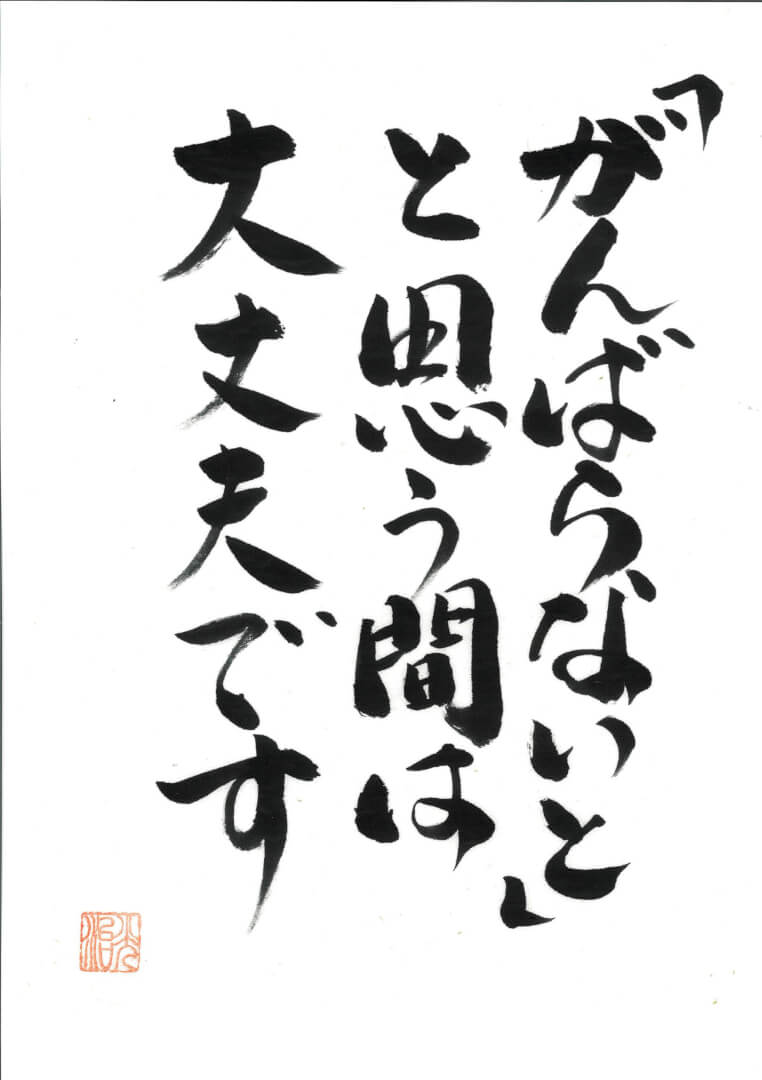 「がんばらないと」
と思う間は
大丈夫です